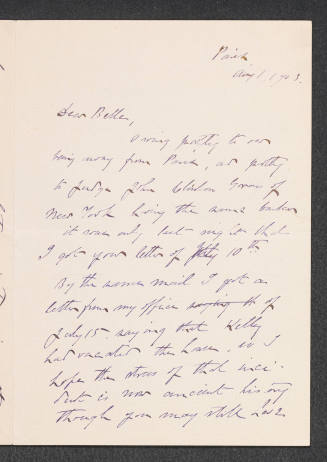 Paris
Aug 1. 1903.
Dear Bella,
Owing partly to our
being away from Paris, and partly
to Judge John Clinton Gray of
New York having the same bankers
it was only last night that
I got your letter of July 10th
By the same mail I got a
letter from my office of
July 15. saying that Kelly
had vacated the house. So I
hope the stress of that inci-
dent is now ancient history
though you may still have